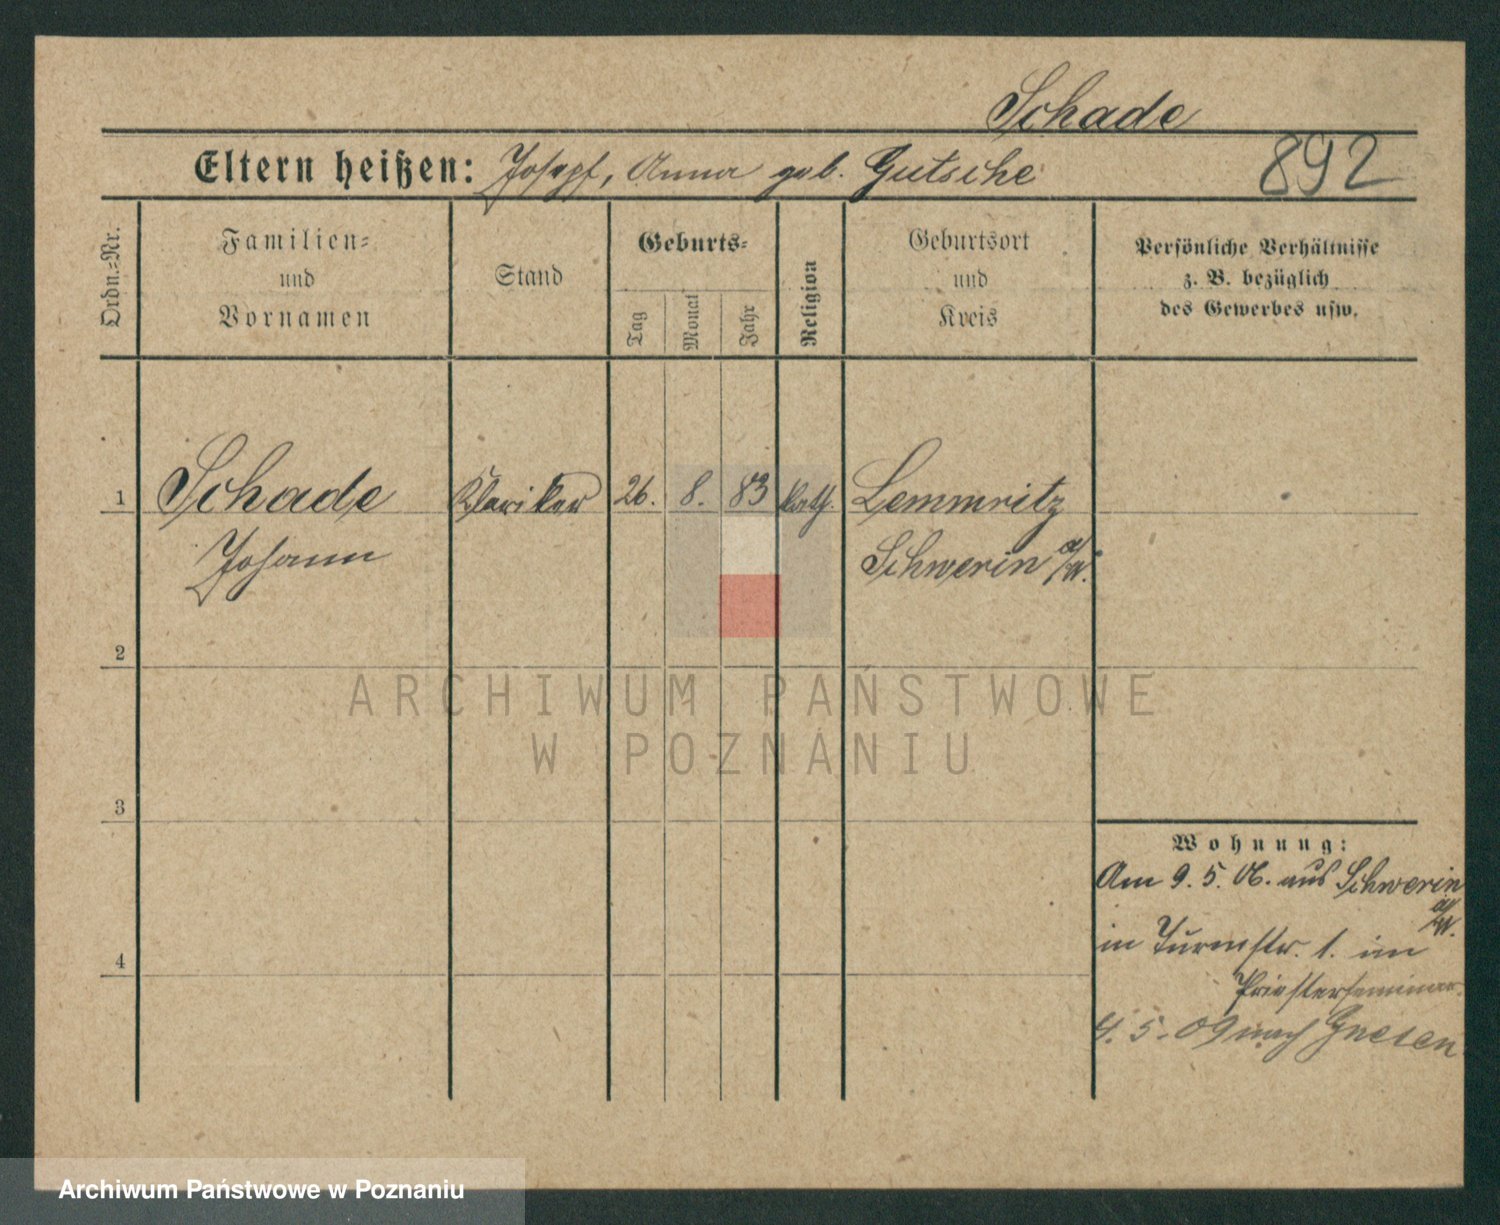 Schade
Eltern heißen: Josepf, Anna geb. Gutsche
892
Ordn.-Nr.
Familien-
und
Vornamen
Stand
Geburts-
Tag
Monat
Jahr
Religion
Geburtsort
und
Kreis
Persönliche Verhältnisse
z. B. bezüglich
des Gewerbes usw.
1 Schade Kleriker 26. 8. 83 kath. Lemmritz
Johann Schwerin a/W.
2
3
4
Wohnung:
Am 9. 5. 06. aus Schwerin
a/W.
in Turmstr. 1. im
Priesterseminar.
4. 5. 09 nach Gnesen
ARCHIWUM PAŃSTWOWE
W POZNANIU
Archiwum Państwowe w Poznaniu